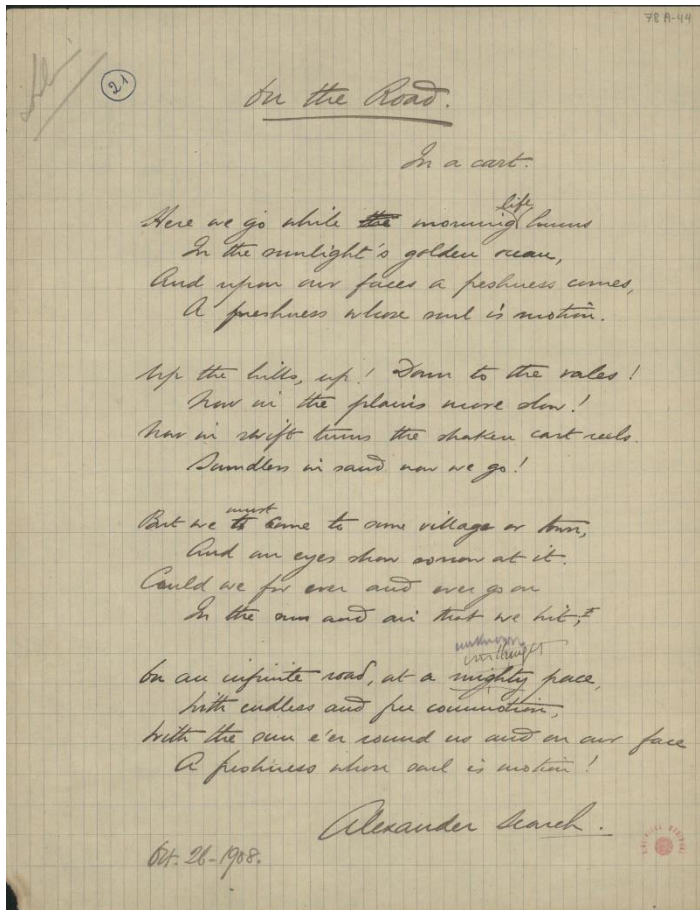 78A-44
21
On the Road.
In a cart.
Here we go while the morning life hums
In the sunlight's golden ocean,
And upon our faces a freshness comes,
A freshness whose soul is motion.
Up the hills, up! Down to the vales!
Now in the plains more slow!
Now in swift turns the shaken cart reels.
Soundless in sand now we go!
But we must to come to some village or town,
And our eyes show sorrow at it.
Could we for ever and ever go on
In the sun and air that we hit;
unknown
On an infinite road, at a mighty pace,
With endless and free commotion,
With the sun e'er round us and on our face
A freshness whose soul is motion!
Alexander Search.
Oct. 26-1908.